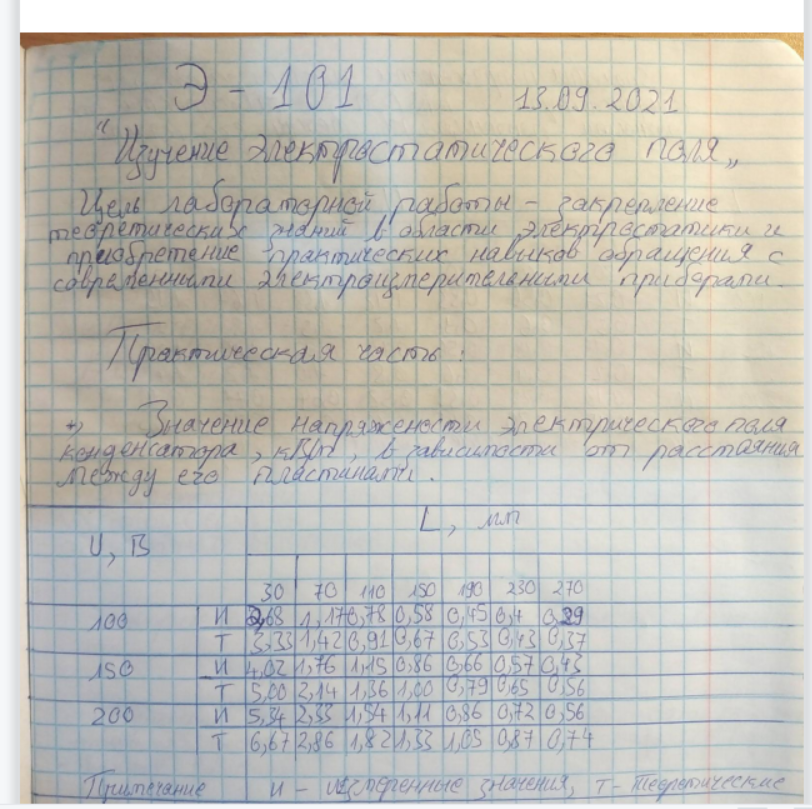 Э - 101 13.09.2021
"Изучение электростатического поля„
Цель лабораторной работы - закрепление
теоретических знаний в области электростатики и
приобретение практических навыков обращения с
современными электроизмерительными приборами.
Практическая часть :
Значение напряжености электрического поля
конденсатора, кВ/м, в зависимости от расстаяния
между его пластинами.
U, В L, мм
30 70 110 150 190 230 270
100 И 2,68 1,17 0,78 0,58 0,45 0,4 0,29
Т 3,33 1,42 0,91 0,67 0,53 0,43 0,37
150 И 4,02 1,76 1,15 0,86 0,66 0,57 0,43
Т 5,00 2,14 1,36 1,00 0,79 0,65 0,56
200 И 5,34 2,33 1,54 1,11 0,86 0,72 0,56
Т 6,67 2,86 1,82 1,33 1,05 0,87 0,74
Примечание и - измеренные значения, т - теоретические